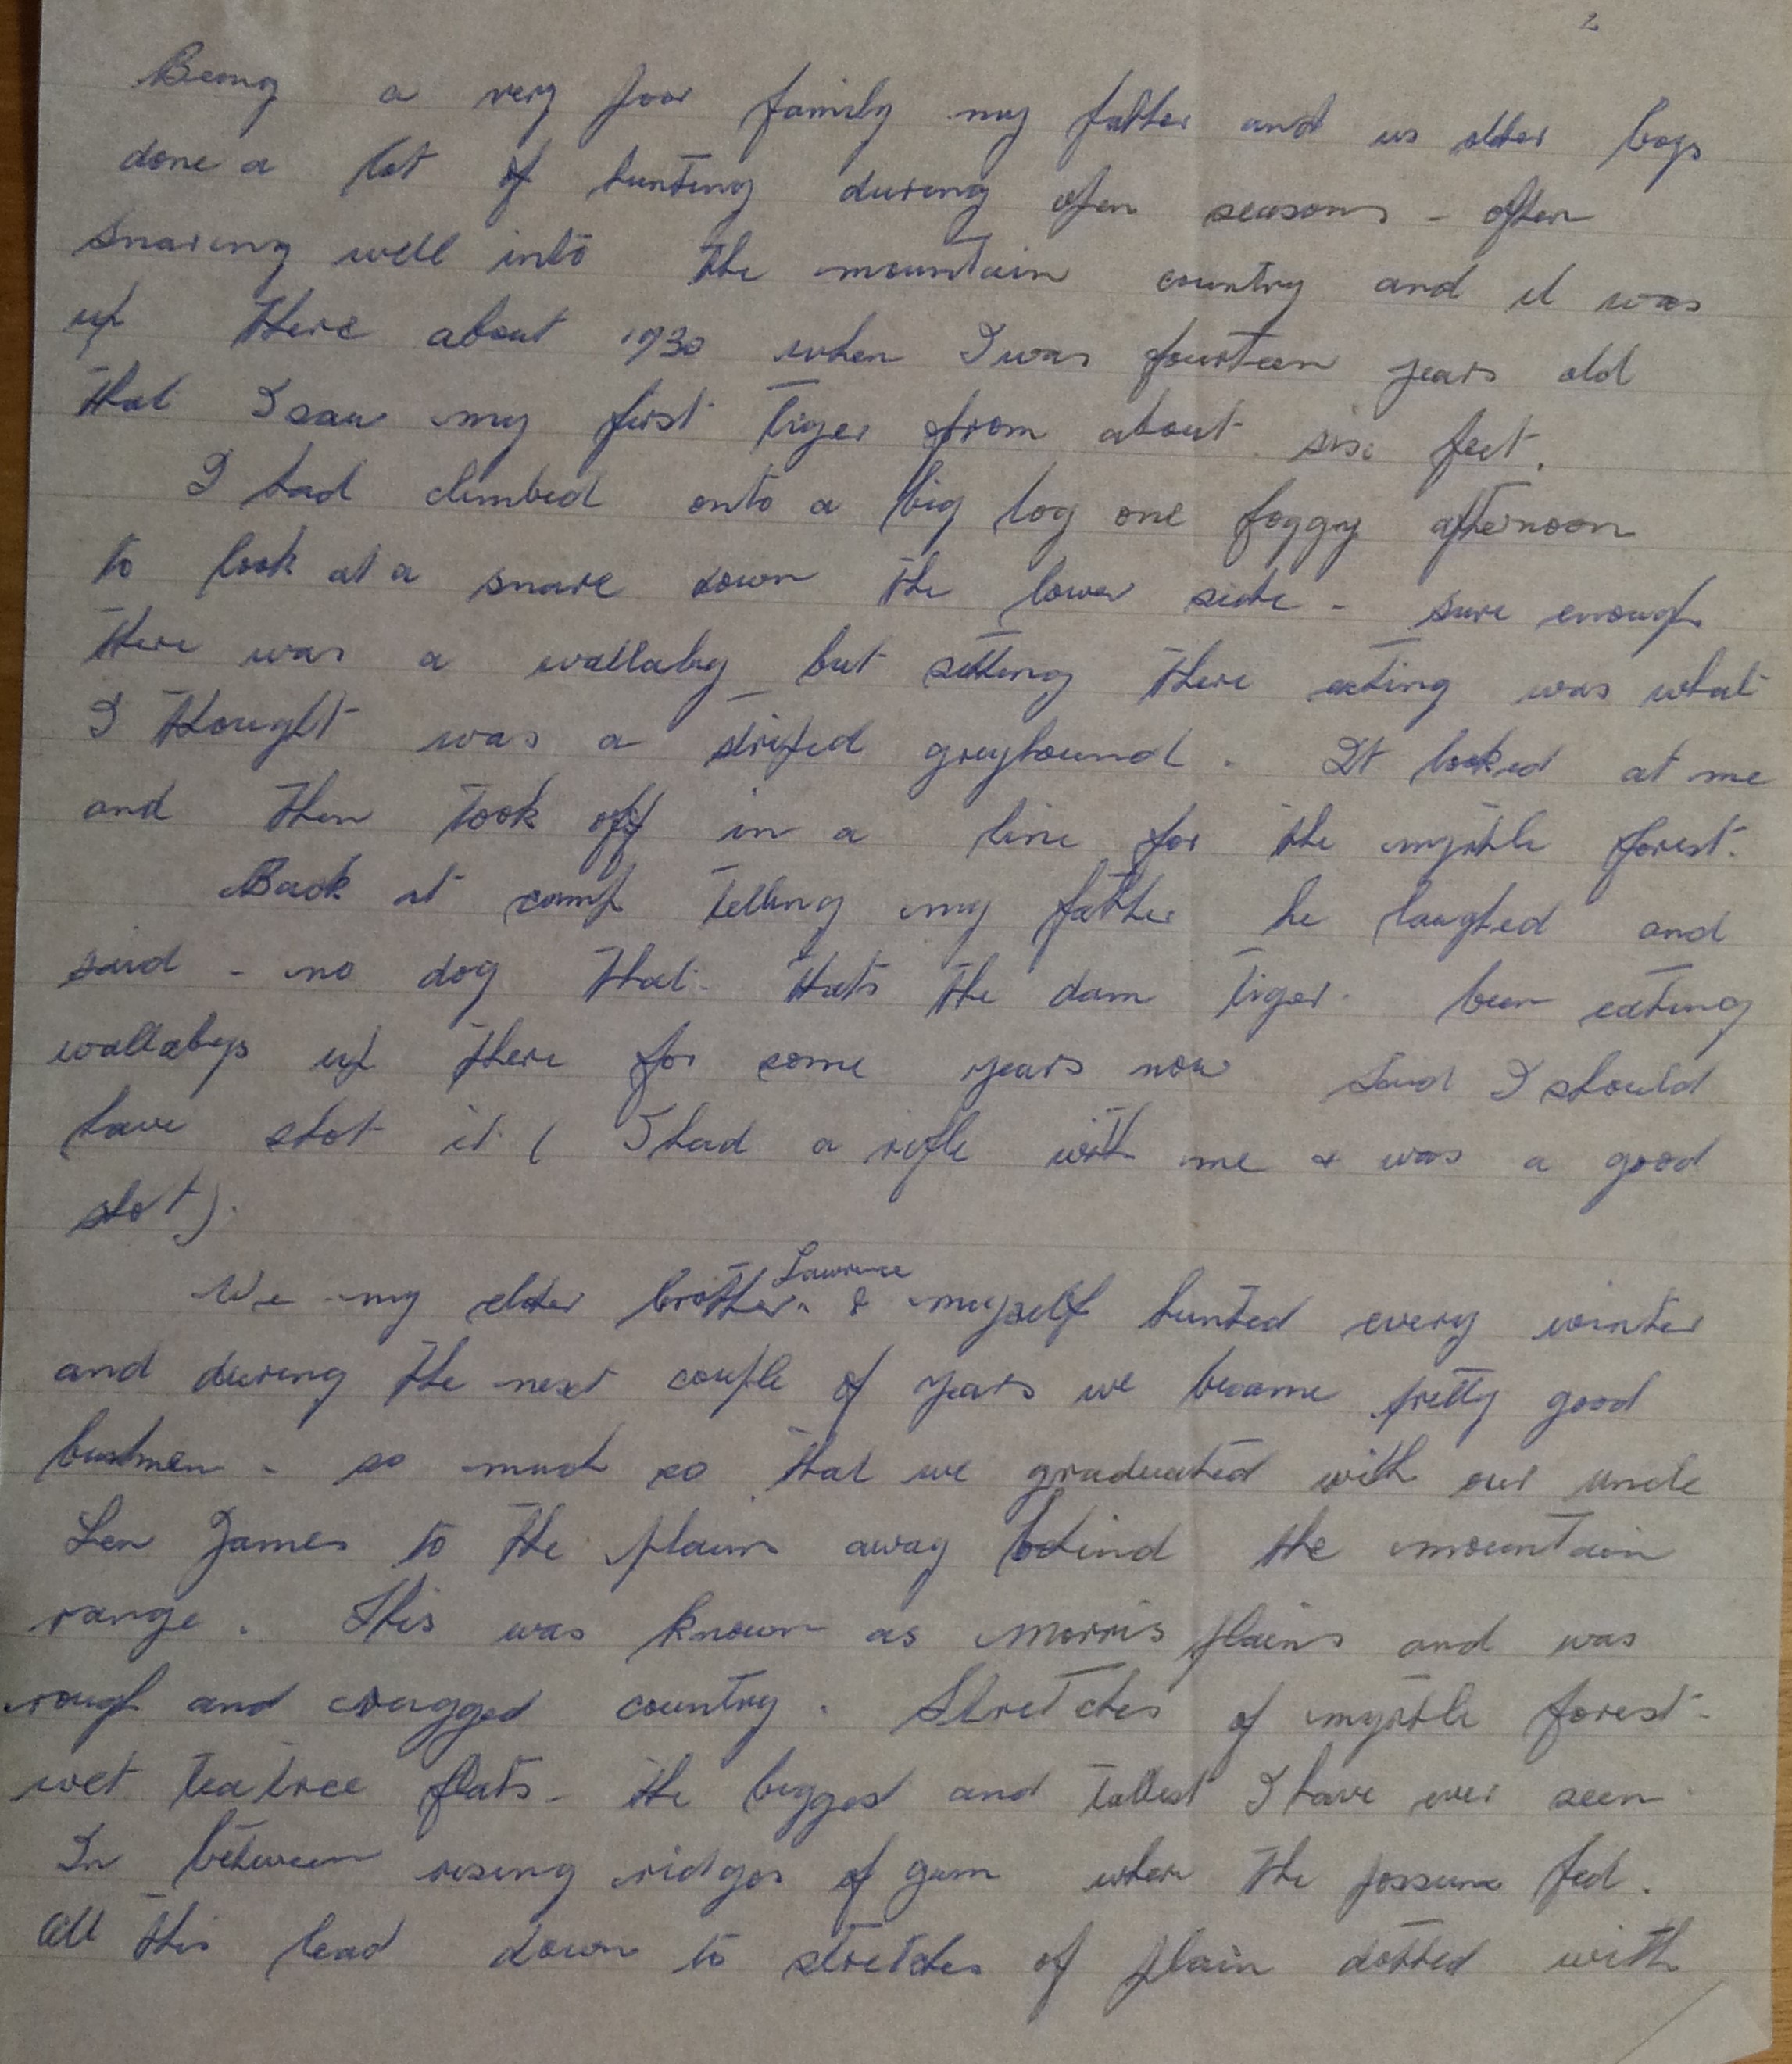 2
Being a very poor family my father and us older boys
done a lot of hunting during open seasons - often
snaring well into the mountain country and it was
up there about 1930 when I was fourteen years old
that I saw my first tiger from about six feet.
I had climbed onto a big log one foggy afternoon
to look at a snare down the lower side - sure enough
there was a wallaby but sitting there eating was what
I thought was a striped greyhound. It looked at me
and then took off in a line for the myrtle forest.
Back at camp telling my father he laughed and
said - no dog that. thats the dam tiger. been eating
wallabys up there for some years now said I should
have shot it ( I had a rifle with me & was a good
shot).
We my elder brother Lawrence & myself hunted every winter
and during the next couple of years we became pretty good
bushmen - so much so that we graduated with our uncle
Len James to the plains away behind the mountain
range. This was known as Morris plains and was
rough and rugged country. Stretches of myrtle forest -
wet teatree flats - the biggest and tallest I have ever seen
In between rising ridges of gum where the possums fed.
All this lead down to stretches of plain dotted with